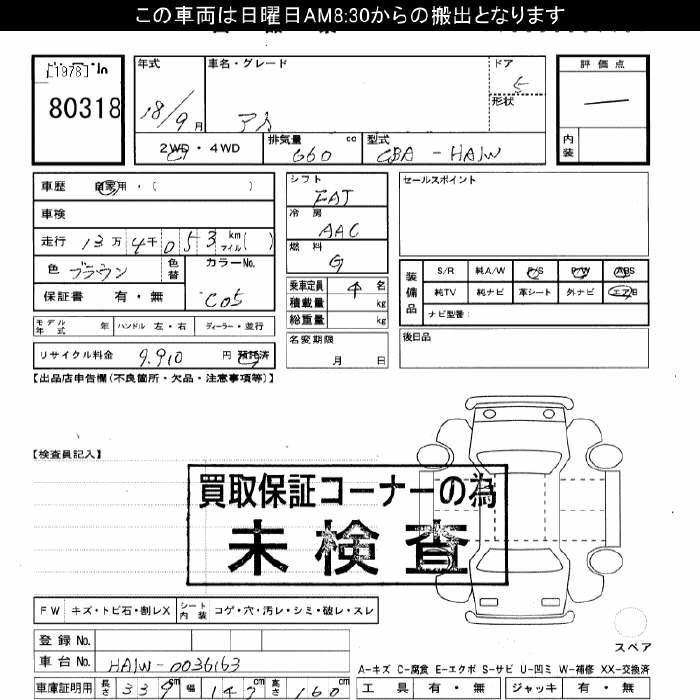 この車両は日曜日AM8:30からの搬出となります
[1978]
80318
年式
18/9月
車名・グレード
アイ
ドア
5
形状
評価点
内装
2WD・4WD
排気量
660
cc
型式
CBA-HA1W
車歴 自家用・( )
車検
走行 13万4千053km マイル( )
色 ブラウン
色替
カラーNo.
C05
保証書 有・無
モデル年式 年
ハンドル 左・右
ディーラー・並行
リサイクル料金 9,910 円 預託済
シフト
FAT
冷房
AAC
燃料
G
乗車定員 4 名
積載量 kg
総重量 kg
名変期限
月 日
セールスポイント
装備品
S/R 純A/W P/S P/W ABS
純TV 純ナビ 革シート 外ナビ エアB
ナビ型番:
後日品
【出品店申告欄(不良箇所・欠品・注意事項等)】
【検査員記入】
買取保証コーナーの為
未検査
FW キズ・トビ石・割レX
シート内装 コゲ・穴・汚レ・シミ・破レ・スレ
登録No.
車台No. HA1W-0036163
車庫証明用 長さ 339cm 幅 147cm 高さ 160cm
スペア
A-キズ C-腐食 E-エクボ S-サビ U-凹ミ W-補修 XX-交換済
工具 有・無 ジャッキ 有・無